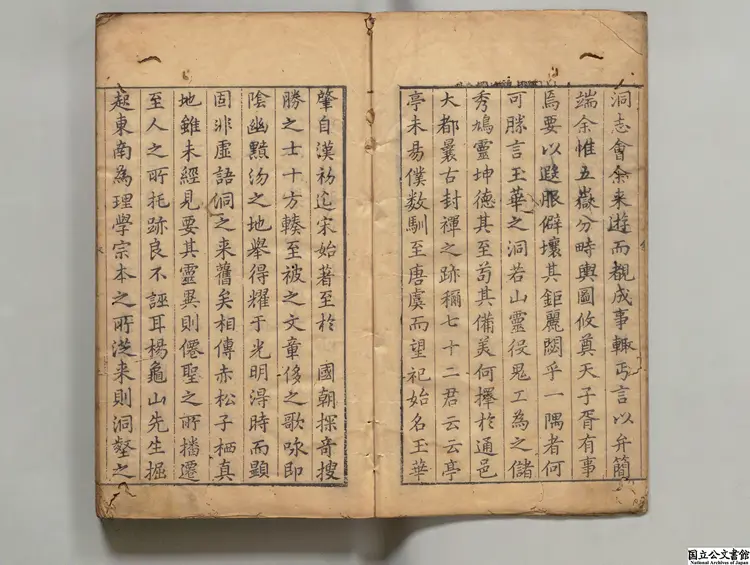 洞志會余来遊而觀成事輙丏言以弁簡
端余惟五嶽分時輿圖攸奠天子胥有事
焉要以遐陬僻壤其鉅麗閟乎一隅者何
可勝言玉華之洞若山靈役鬼工為之儲
秀鳩靈坤德其至苟其備美何擇於通邑
大都曩古封禪之跡稱七十二君云云亭
亭未易僕数馴至唐虞而望祀始名玉華
肇自漢初迄宋始著至於 國朝探奇搜
勝之士十方輳至被之文章侈之歌咏即
陰幽黝沕之地舉得耀于光明淂時而顯
固非虚語洞之来舊矣相傳赤松子栖真
地雖未經見要其靈異則僊聖之所播遷
至人之所托跡良不誣耳楊龜山先生掘
起東南為理學宗本之所従来則洞壑之
国立公文書館
National Archives of Japan